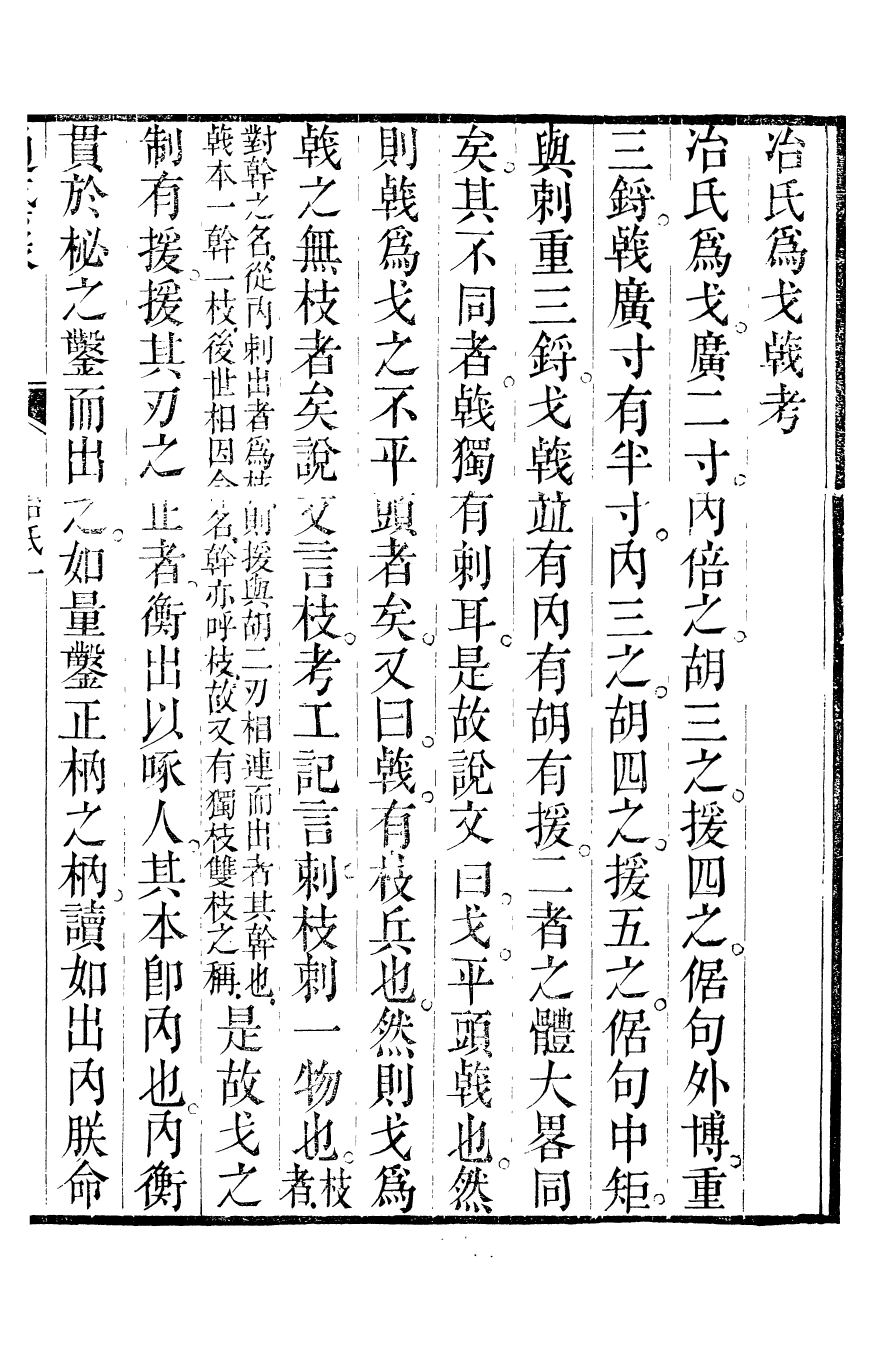 冶氏爲戈戟考
冶氏爲戈廣二寸內倍之胡三之援四之倨句外博重
三鋝戟廣寸有半寸內三之胡四之援五之倨句中矩
與刺重三鋝戈戟竝有內有胡有援二者之體大畧同
矣其不同者戟獨有刺耳是故說文曰戈平頭戟也然
則戟爲戈之不平頭者矣又曰戟有枝兵也然則戈爲
戟之無枝者矣說文言枝考工記言刺枝刺一物也枝者
對幹之名從內刺出者爲枝則援與胡二刃相連而出者其幹也
戟本一幹一枝後世相因命名幹亦呼枝故又有獨枝雙枝之稱
是故戈之
制有援援其刃之正者衡出以啄人其本卽內也內衡
貫於柲之鑿而出之如量鑿正枘之枘讀如出內朕命